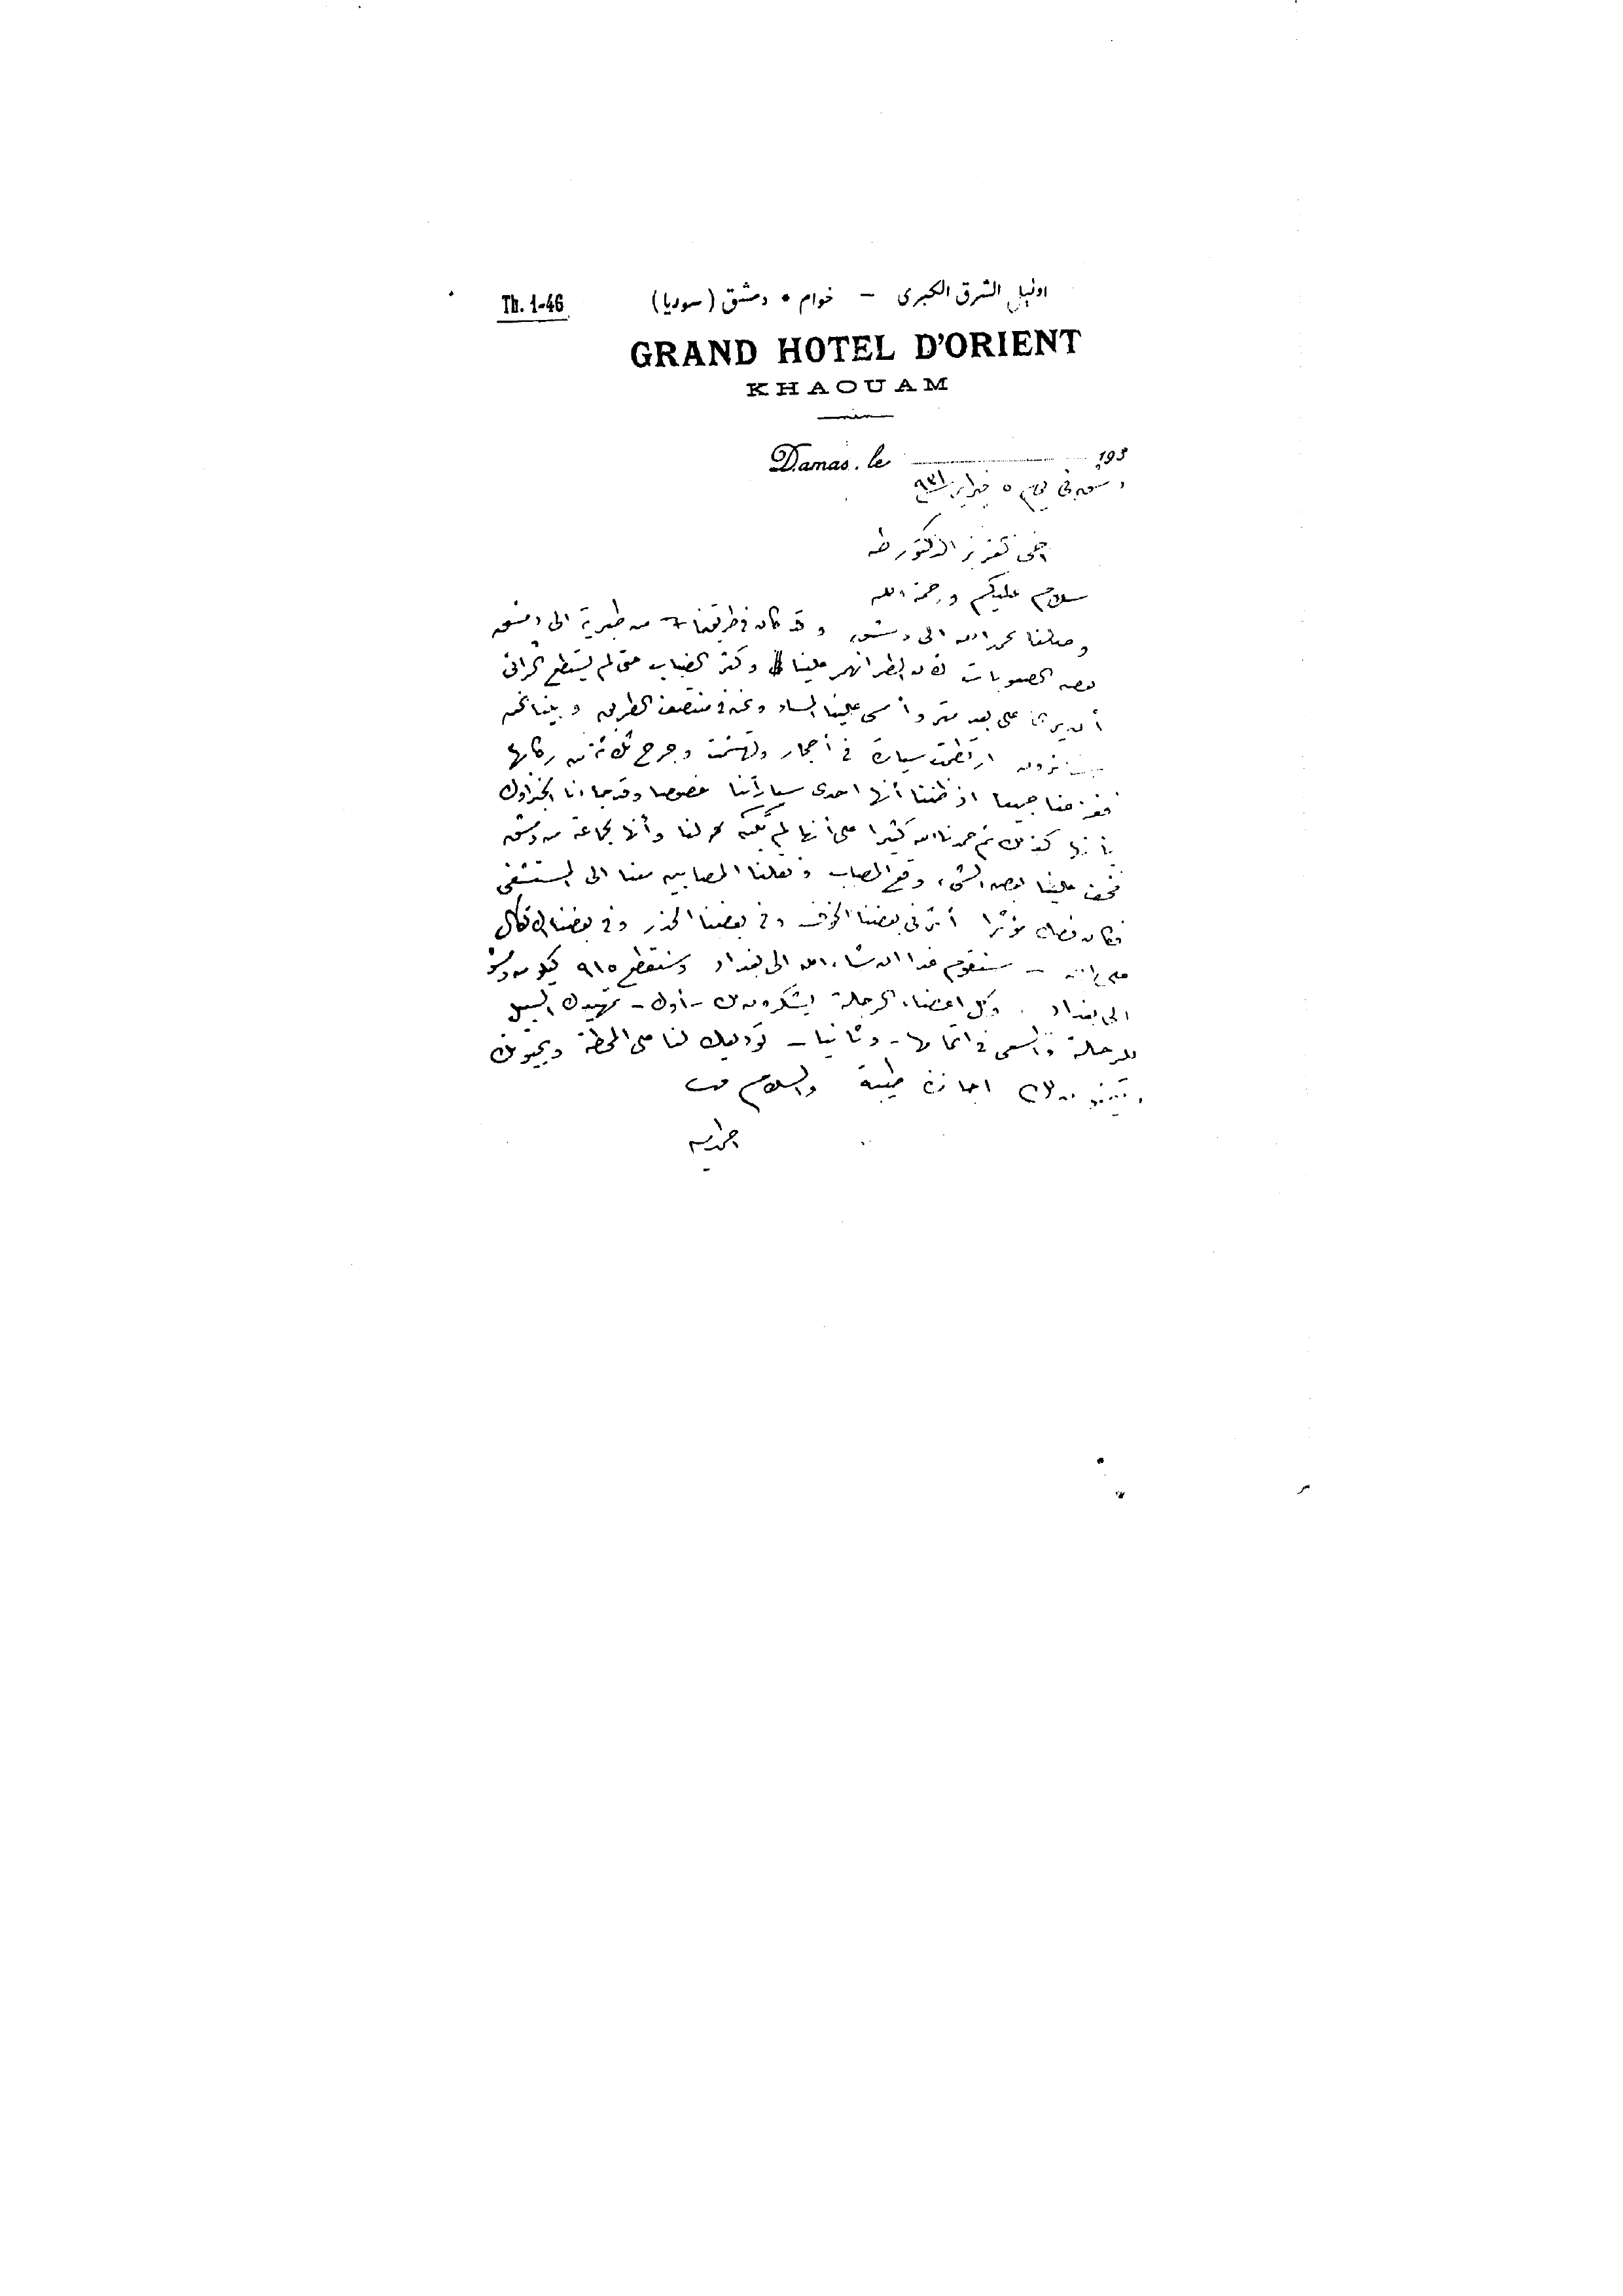 Th. 1-46
اوتيل الشرق الكبرى – خوام • دمشق (سوريا)
GRAND HOTEL D'ORIENT
KHAOUAM
Damas, le 193
دمشق في ٥ فبراير ٩٣١
أخي العزيز الدكتور طه
سلام عليكم ورحمة الله
وصلنا بحمد الله الى دمشق وقد كان في طريقنا من طبرية الى دمشق
بعض الصعوبات لأن المطر انهمر علينا وكثر الضباب حتى لم يستطع الرائي
أن يرى على بعد متر وأمسى علينا المساء ونحن في منتصف الطريق وبينا نحن
ارتطمت سيارة في أحجار وتهشمت وجرح ثلاثة من ركابها
ففزعنا جميعا اذ ظننا أنها احدى سياراتنا خصوصا وقد جاءنا الخبر أولا
بأنها كذلك ثم حمدنا الله كثيرا على أنها لم تكن لنا وأنها لجماعة من دمشق
فخف علينا بعض الشيء وقع المصاب ونقلنا المصابين معنا الى المستشفى
فكان مؤثرا أثر في بعضنا الخوف وفي بعضنا الحذر وفي بعضنا الاتكال
على الله – سنقوم غدا ان شاء الله الى بغداد وسنقطع ٩١٥ كيلو من دمشق
الى بغداد . وكل أعضاء الرحلة يشكرون لك – أولا – تمهيدك السبيل
للرحلة والسعي في اتمامها – وثانيا – توديعك لنا على المحطة ويحيونك
ويتمنون لك اجازة طيبة والسلام
احمد امين